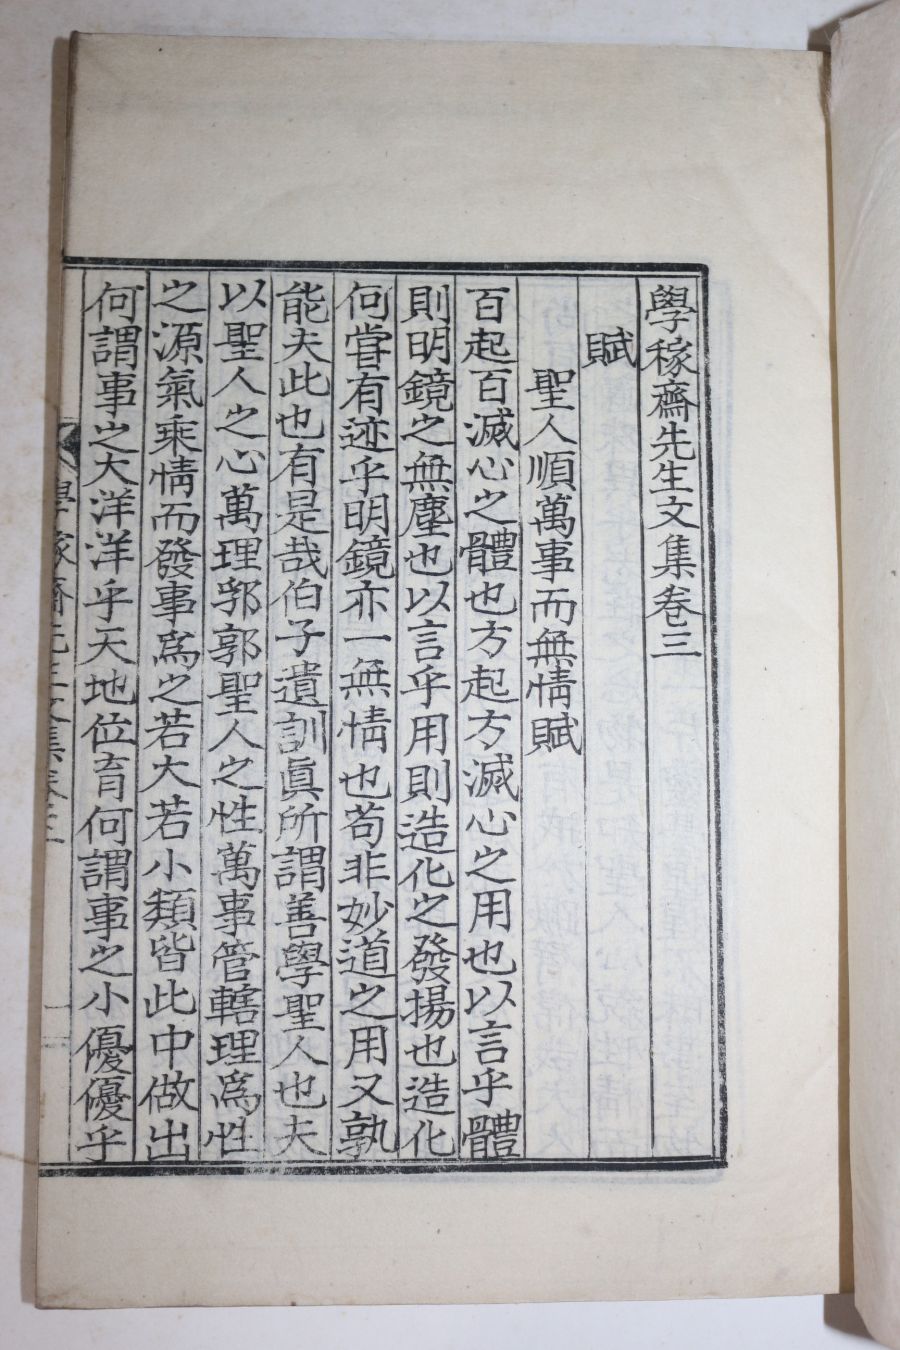 學稼齋先生文集卷三
賦
聖人順萬事而無情賦
百起百滅心之體也方起方滅心之用也以言乎體
則明鏡之無塵也以言乎用則造化之發揚也造化
何嘗有迹乎明鏡亦一無情也苟非妙道之用又孰
能夫此也有是哉伯子遺訓眞所謂善學聖人也夫
以聖人之心萬理郛郭聖人之性萬事管轄理爲性
之源氣乘情而發事爲之若大若小類皆此中做出
何謂事之大洋洋乎天地位育何謂事之小優優乎
學稼齋先生文集卷三